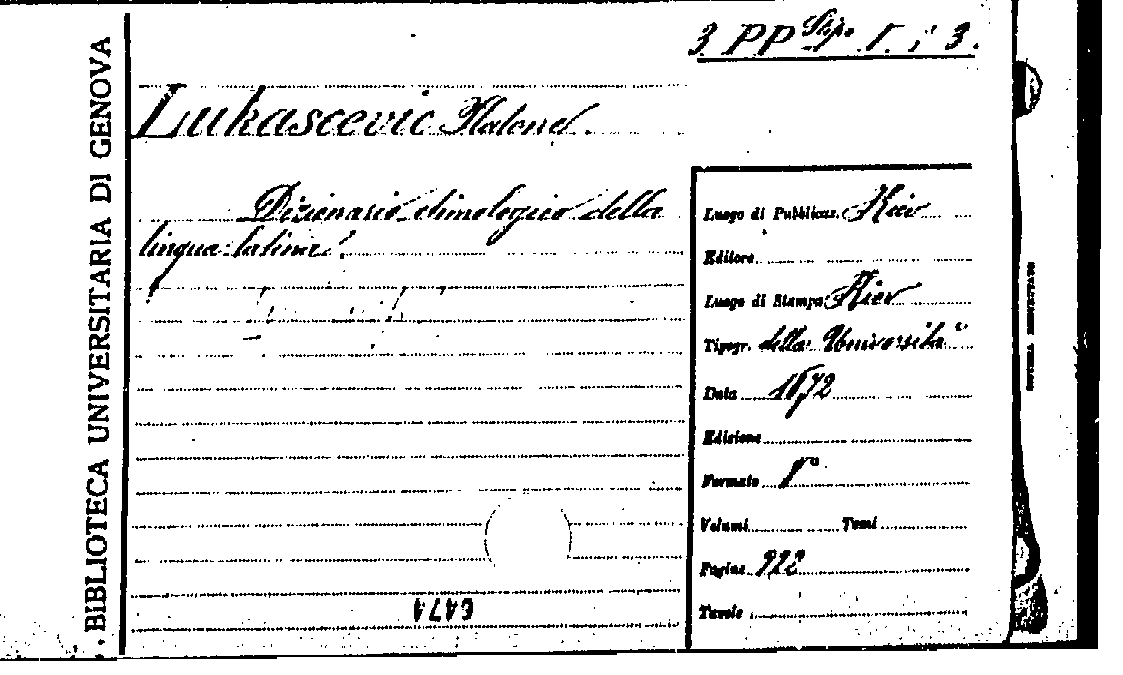 3 PP Stip. I. i 3.
BIBLIOTECA UNIVERSITARIA DI GENOVA
Lukascevic Platone.
Dizionario etimologico della
lingua latina.
Luogo di Pubblicaz. Kiev
Editore
Luogo di Stampa Kiev
Tipogr. della Università
Data 1872
Edizione
Formato 8°
Volumi Tomi
Pagine 922
Tavole
6474